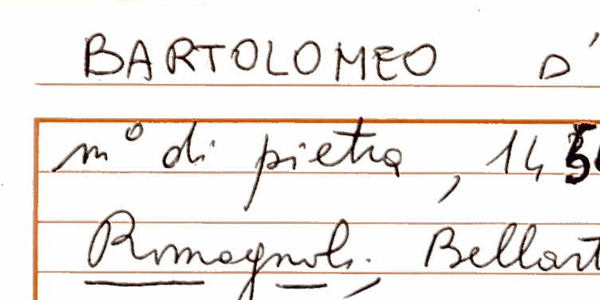 BARTOLOMEO D'
m° di pietra, 145
Romagnoli, Bellart